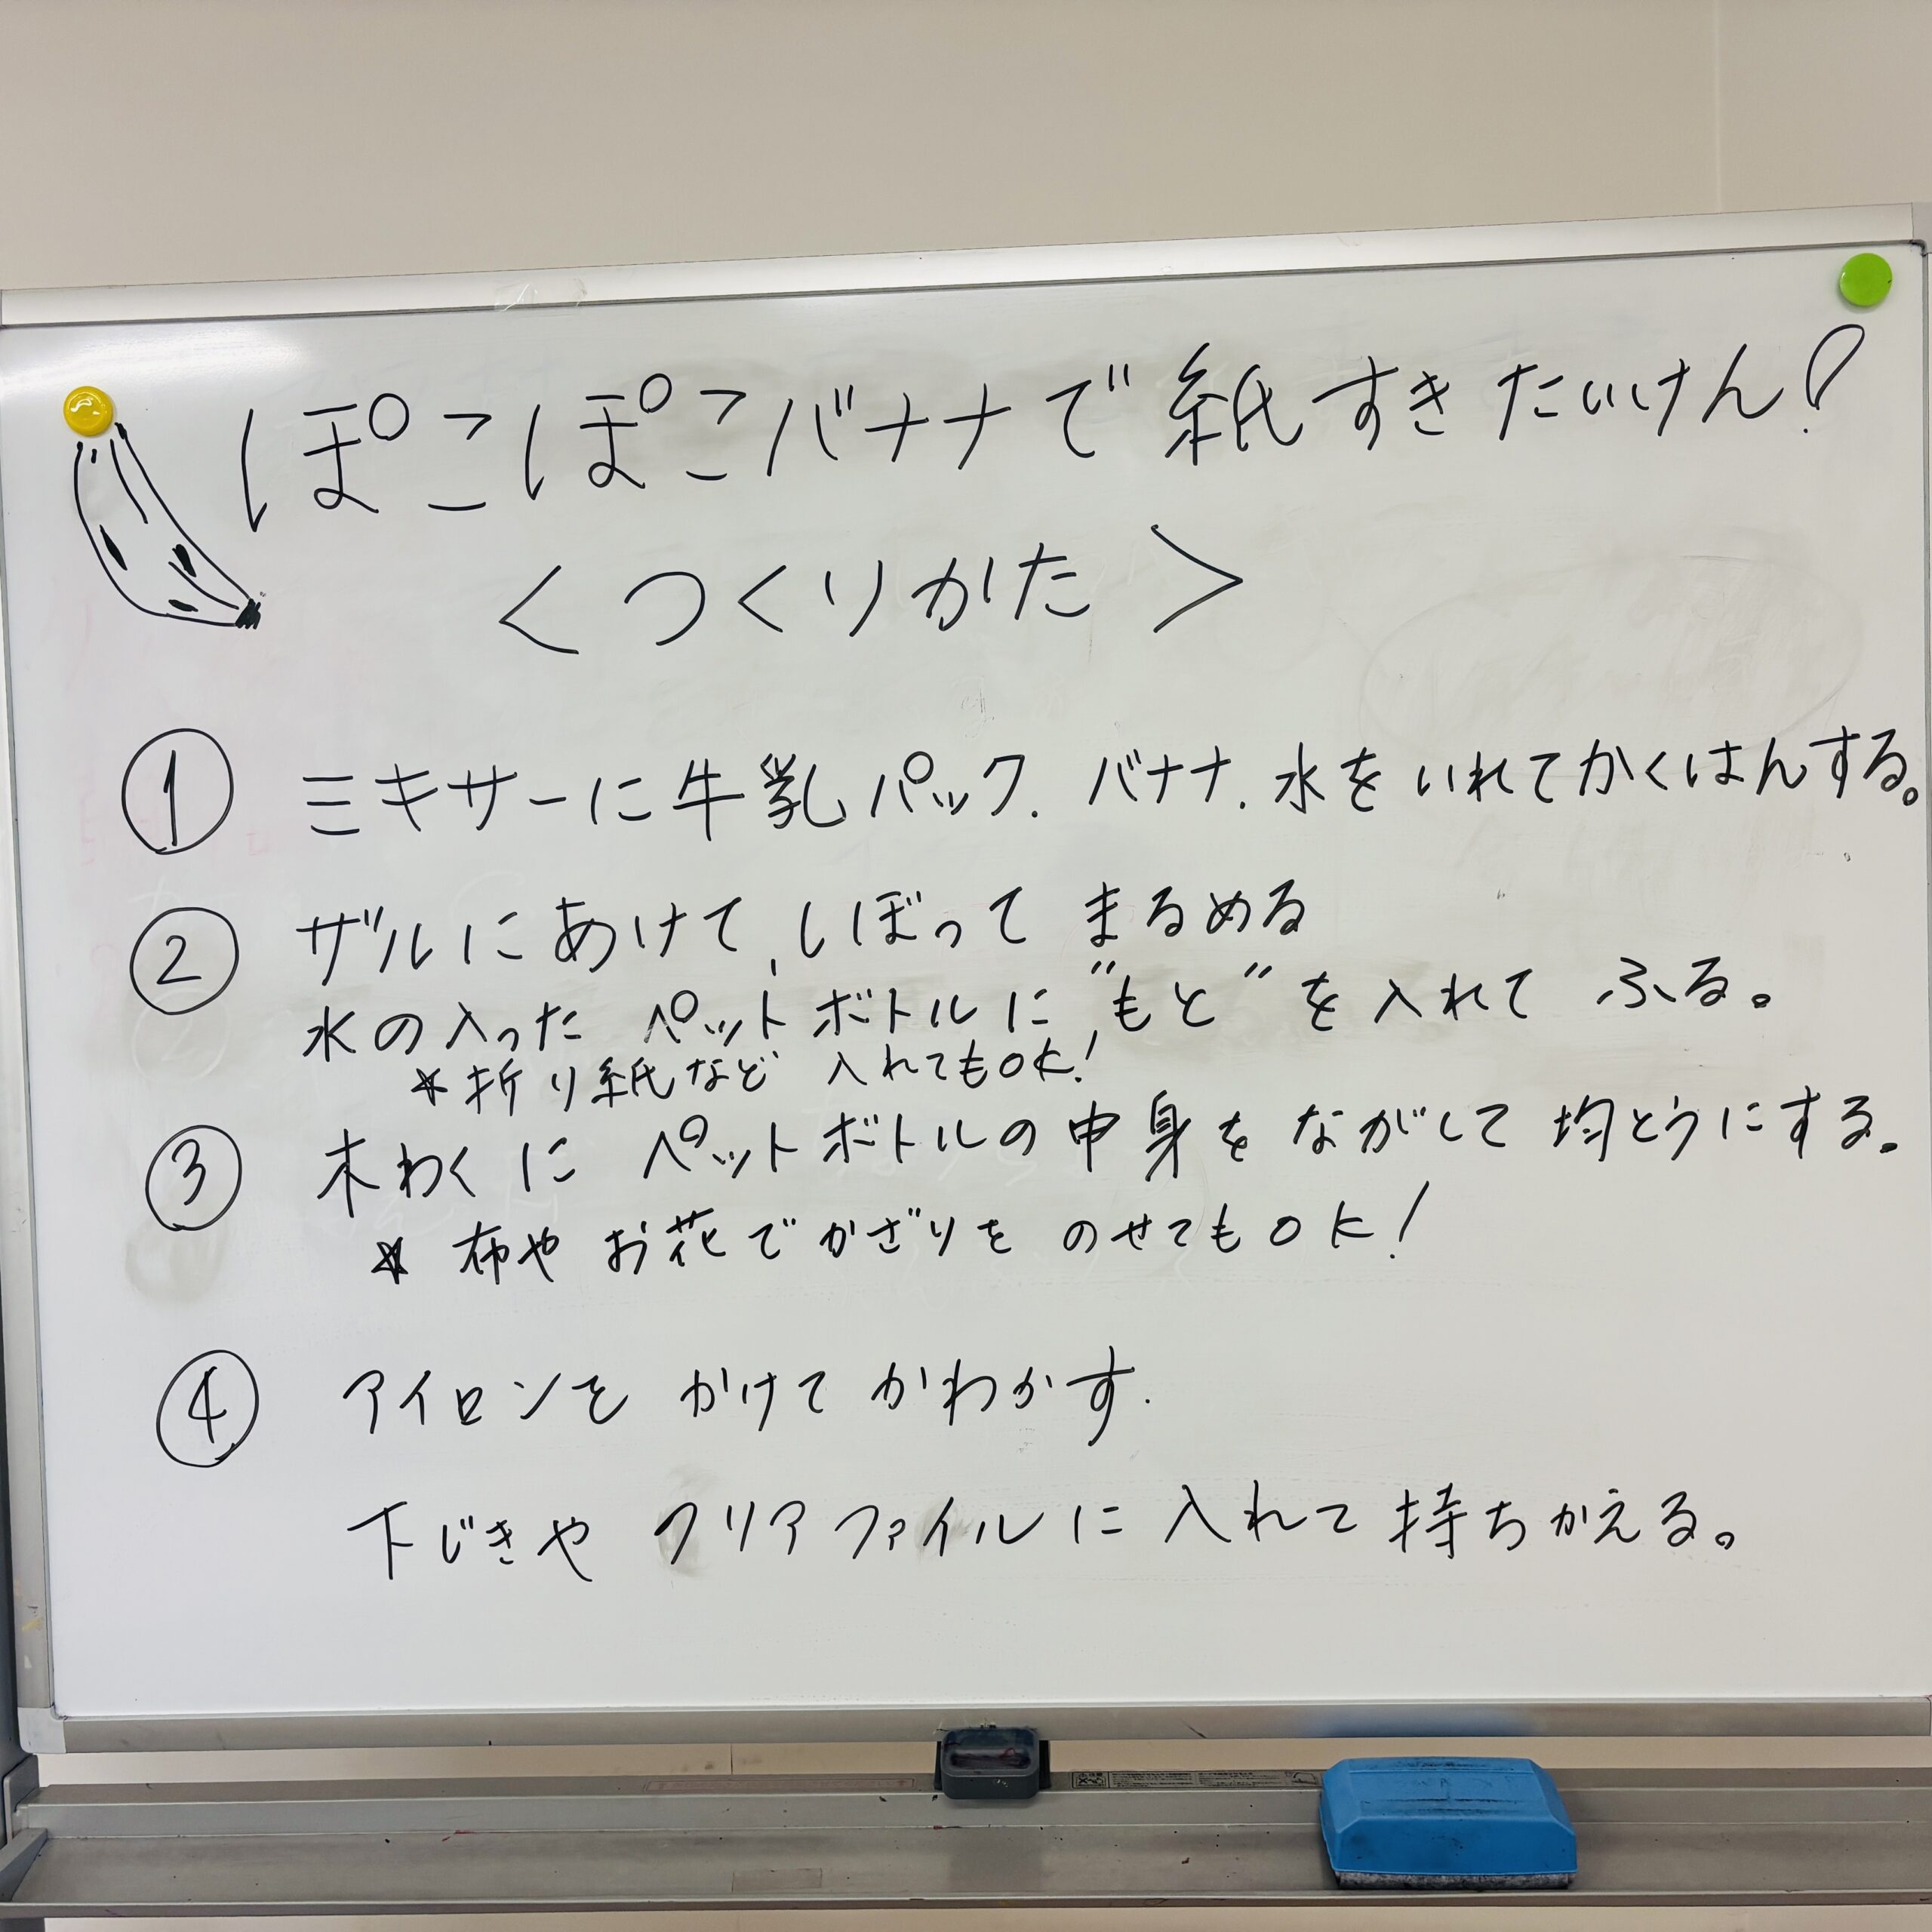 ぽこぽこバナナで紙すきたいけん!
<つくりかた>
① ミキサーに牛乳パック.バナナ.水をいれてかくはんする。
② ザルにあけて、しぼって まるめる
水の入った ペットボトルに"もと"を入れて ふる。
★折り紙など 入れてもOK!
③ 木わくに ペットボトルの中身を ながして 均とうにする。
★ 布や お花で かざりを のせても OK!
④ アイロンを かけて かわかす.
下じきや クリアファイルに 入れて 持ちかえる。